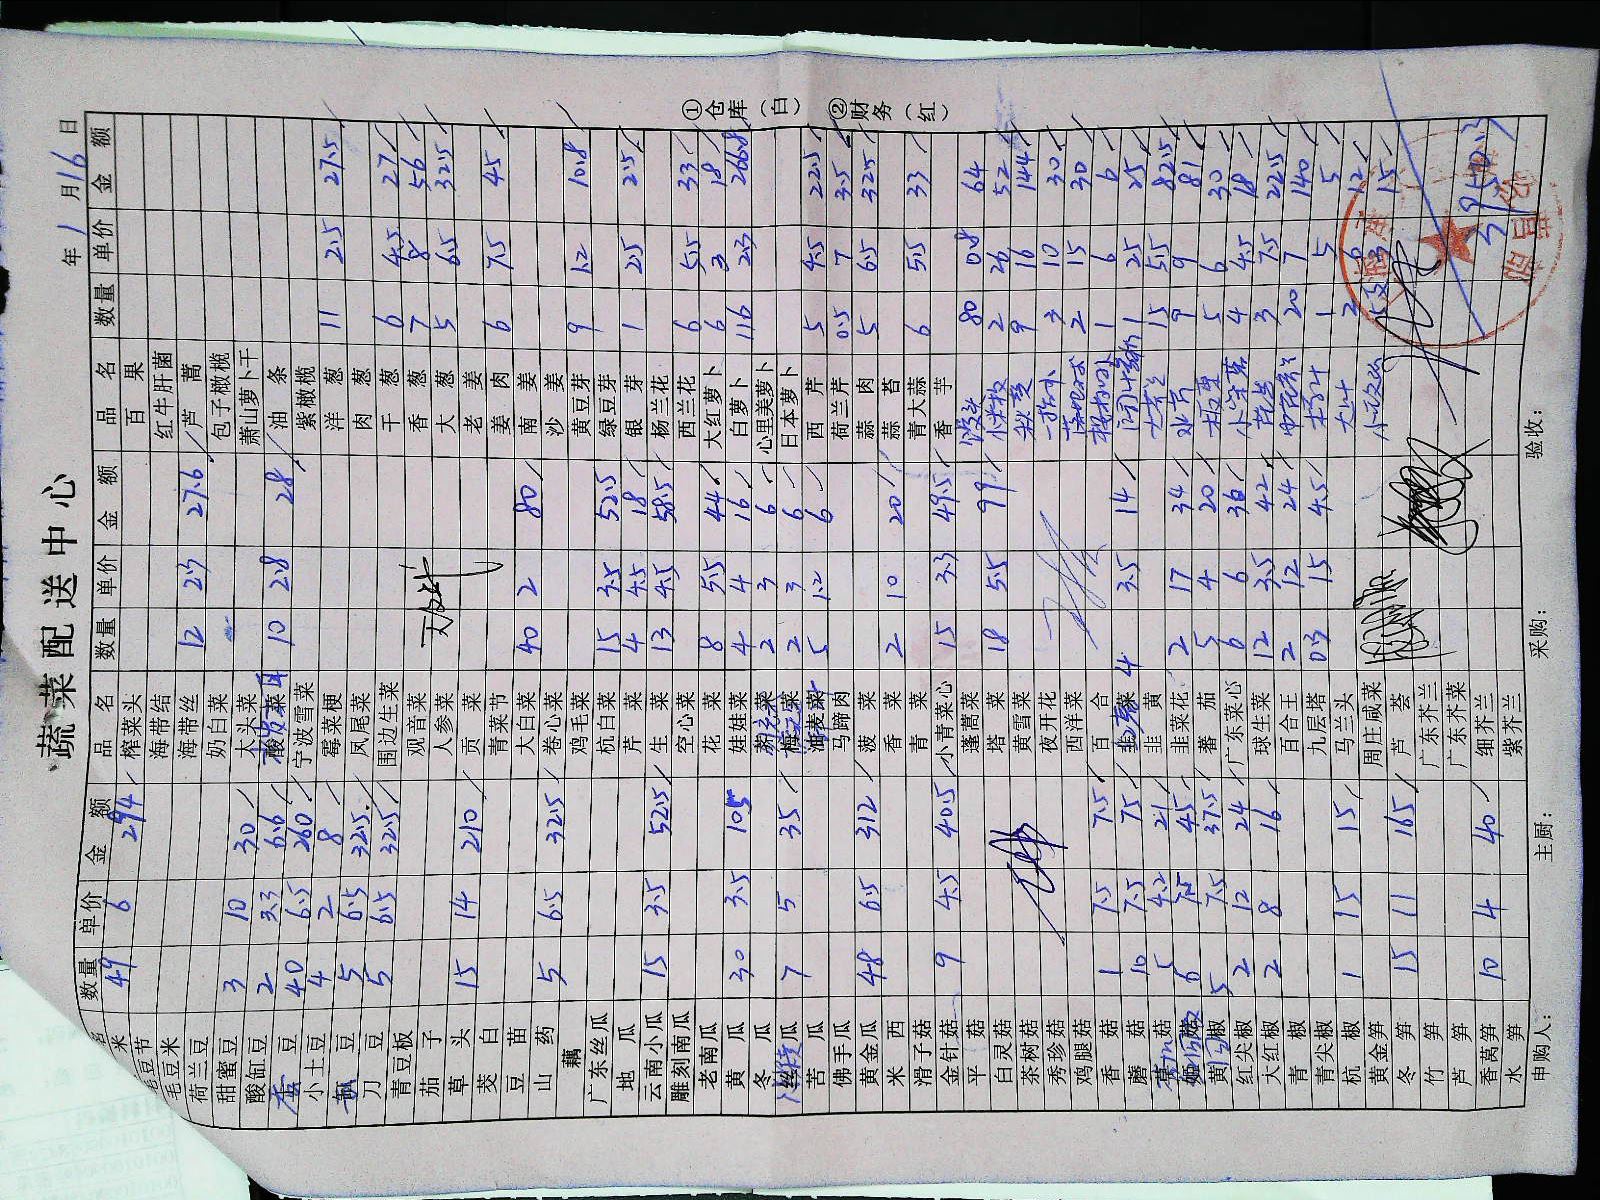 蔬菜配送中心
年 1 月 16 日
品名 数量 单价 金额 品名 数量 单价 金额 品名 数量 单价 金额
米 49 6 294 榨菜头 百果
毛豆节 海带结 红牛肝菌
毛豆米 海带丝 12 2.3 27.6 芦蒿
荷兰豆 奶白菜 包子橄榄
甜蜜豆 3 10 30 大头菜 萧山萝卜干
酸缸豆 2 3.3 6.6 10 2.8 28 油条
豆 40 6.5 260 宁波雪菜 紫橄榄
小土豆 4 2 8 霉菜梗 洋葱 11 2.5 27.5
豆 5 6.5 32.5 凤尾菜 肉葱
刀豆 5 6.5 32.5 围边生菜 干葱 6 4.5 27
青豆板 观音菜 香葱 7 8 56
茄子 人参菜 大葱 5 6.5 32.5
草头 15 14 210 贡菜 老姜
茭白 青菜节 姜肉 6 7.5 45
豆苗 大白菜 40 2 80 南姜
山药 5 6.5 32.5 卷心菜 沙姜
藕 鸡毛菜 黄豆芽 9 1.2 10.8
广东丝瓜 杭白菜 15 3.5 52.5 绿豆芽
地瓜 芹菜 4 4.5 18 银芽 1 2.5 2.5
云南小瓜 15 3.5 52.5 生菜 13 4.5 58.5 杨兰花
雕刻南瓜 空心菜 西兰花 6 5.5 33
老南瓜 花菜 8 5.5 44 大红萝卜 6 3 18
黄瓜 30 3.5 105 娃娃菜 4 4 16 白萝卜 116 2.3 266.8
冬瓜 2 3 6 心里美萝卜
丝瓜 7 5 35 2 3 6 日本萝卜
苦瓜 5 1.2 6 西芹 5 4.5 22.5
佛手瓜 马蹄肉 荷兰芹 0.5 7 3.5
黄金瓜 48 6.5 312 菠菜 蒜肉 5 6.5 32.5
米西 香菜 2 10 20 蒜苔
滑子菇 青菜 青大蒜 6 5.5 33
金针菇 9 4.5 40.5 小青菜心 15 3.3 49.5 香芋
平菇 蓬蒿菜 80 0.8 64
白灵菇 塔菜 18 5.5 99 小米椒 2 26 52
茶树菇 黄雪菜 秋葵 9 16 144
秀珍菇 夜开花 3 10 30
鸡腿菇 西洋菜 2 15 30
香菇 1 7.5 7.5 百合 1 6 6
蘑菇 10 7.5 75 4 3.5 14 1 25 25
菇 5 4.2 21 韭黄 15 5.5 82.5
6 7.5 45 韭菜花 2 17 34 9 9 81
黄椒 5 7.5 37.5 蕃茄 5 4 20 5 6 30
红尖椒 2 12 24 广东菜心 6 6 36 4 4.5 18
大红椒 2 8 16 球生菜 12 3.5 42 3 7.5 22.5
青椒 百合王 2 12 24 20 7 140
青尖椒 九层塔 0.3 15 4.5 1 5 5
杭椒 1 15 15 马兰头 2 6 12
黄金笋 周庄咸菜 3 15
冬笋 15 11 165 芦荟
竹笋 广东芥兰
芦笋 广东芥菜
香莴笋 10 4 40 细芥兰 3950.3
水笋 紫芥兰
申购人： 主厨： 采购： 验收：
①仓库（白） ②财务（红）